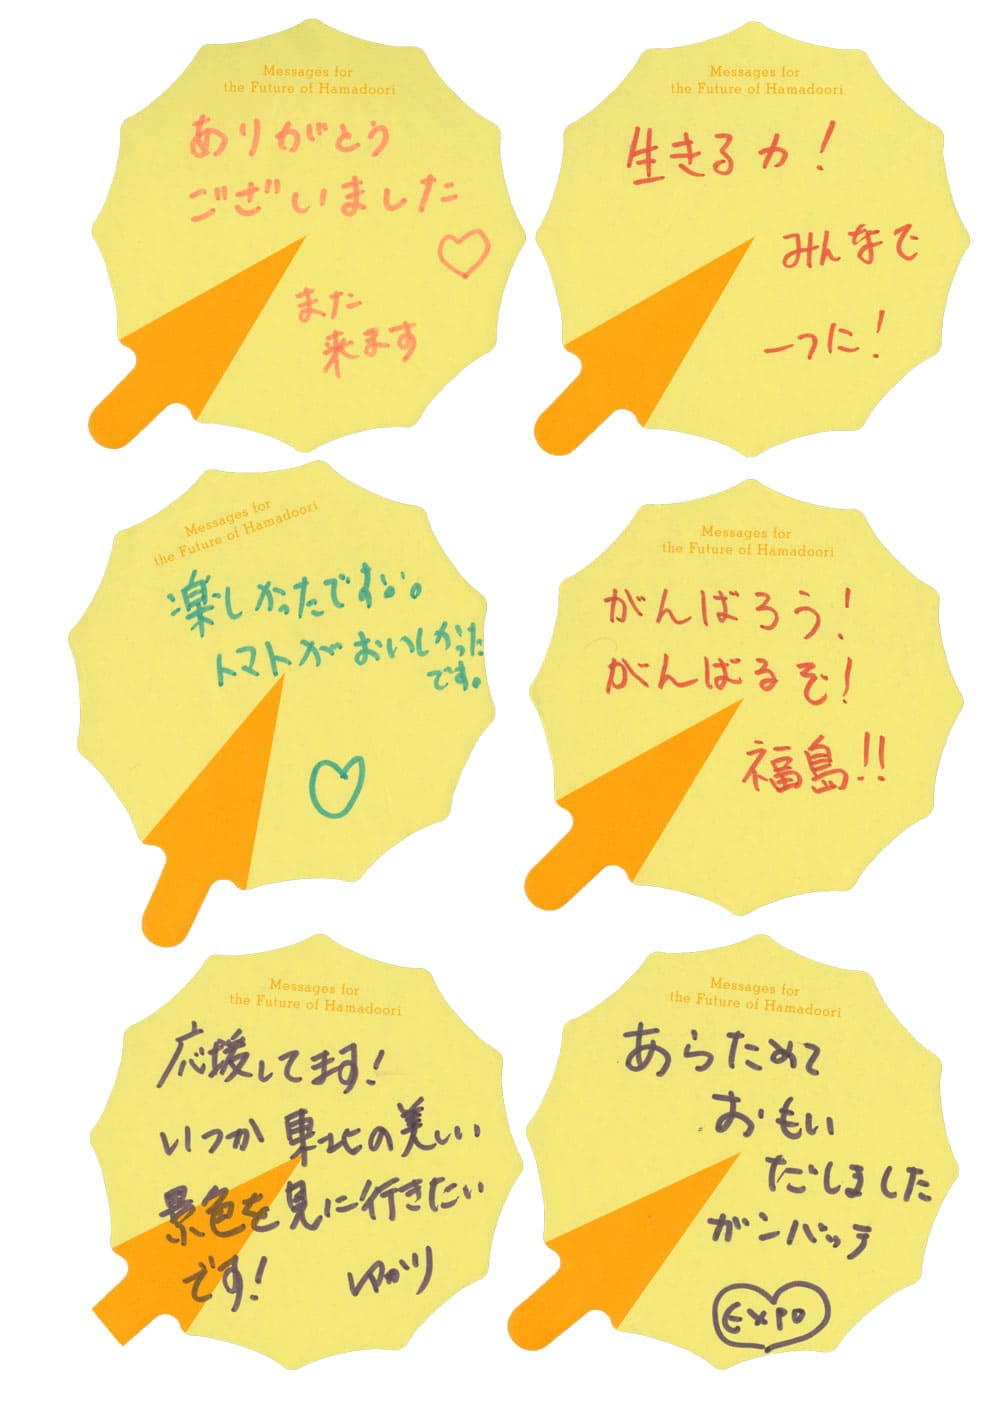 Messages for
the Future of Hamadoori
ありがとう
ございました
♡
また
来ます
Messages for
the Future of Hamadoori
生きる力!
みんなで
一つに!
Messages for
the Future of Hamadoori
楽しかったです。
トマトがおいしかった
です。
♡
Messages for
the Future of Hamadoori
がんばろう!
がんばるぞ!
福島!!
Messages for
the Future of Hamadoori
応援してます!
いつか東北の美しい
景色を見に行きたい
です! ゆかり
Messages for
the Future of Hamadoori
あらためて
おもい
だしました
ガンバッテ
EXPO